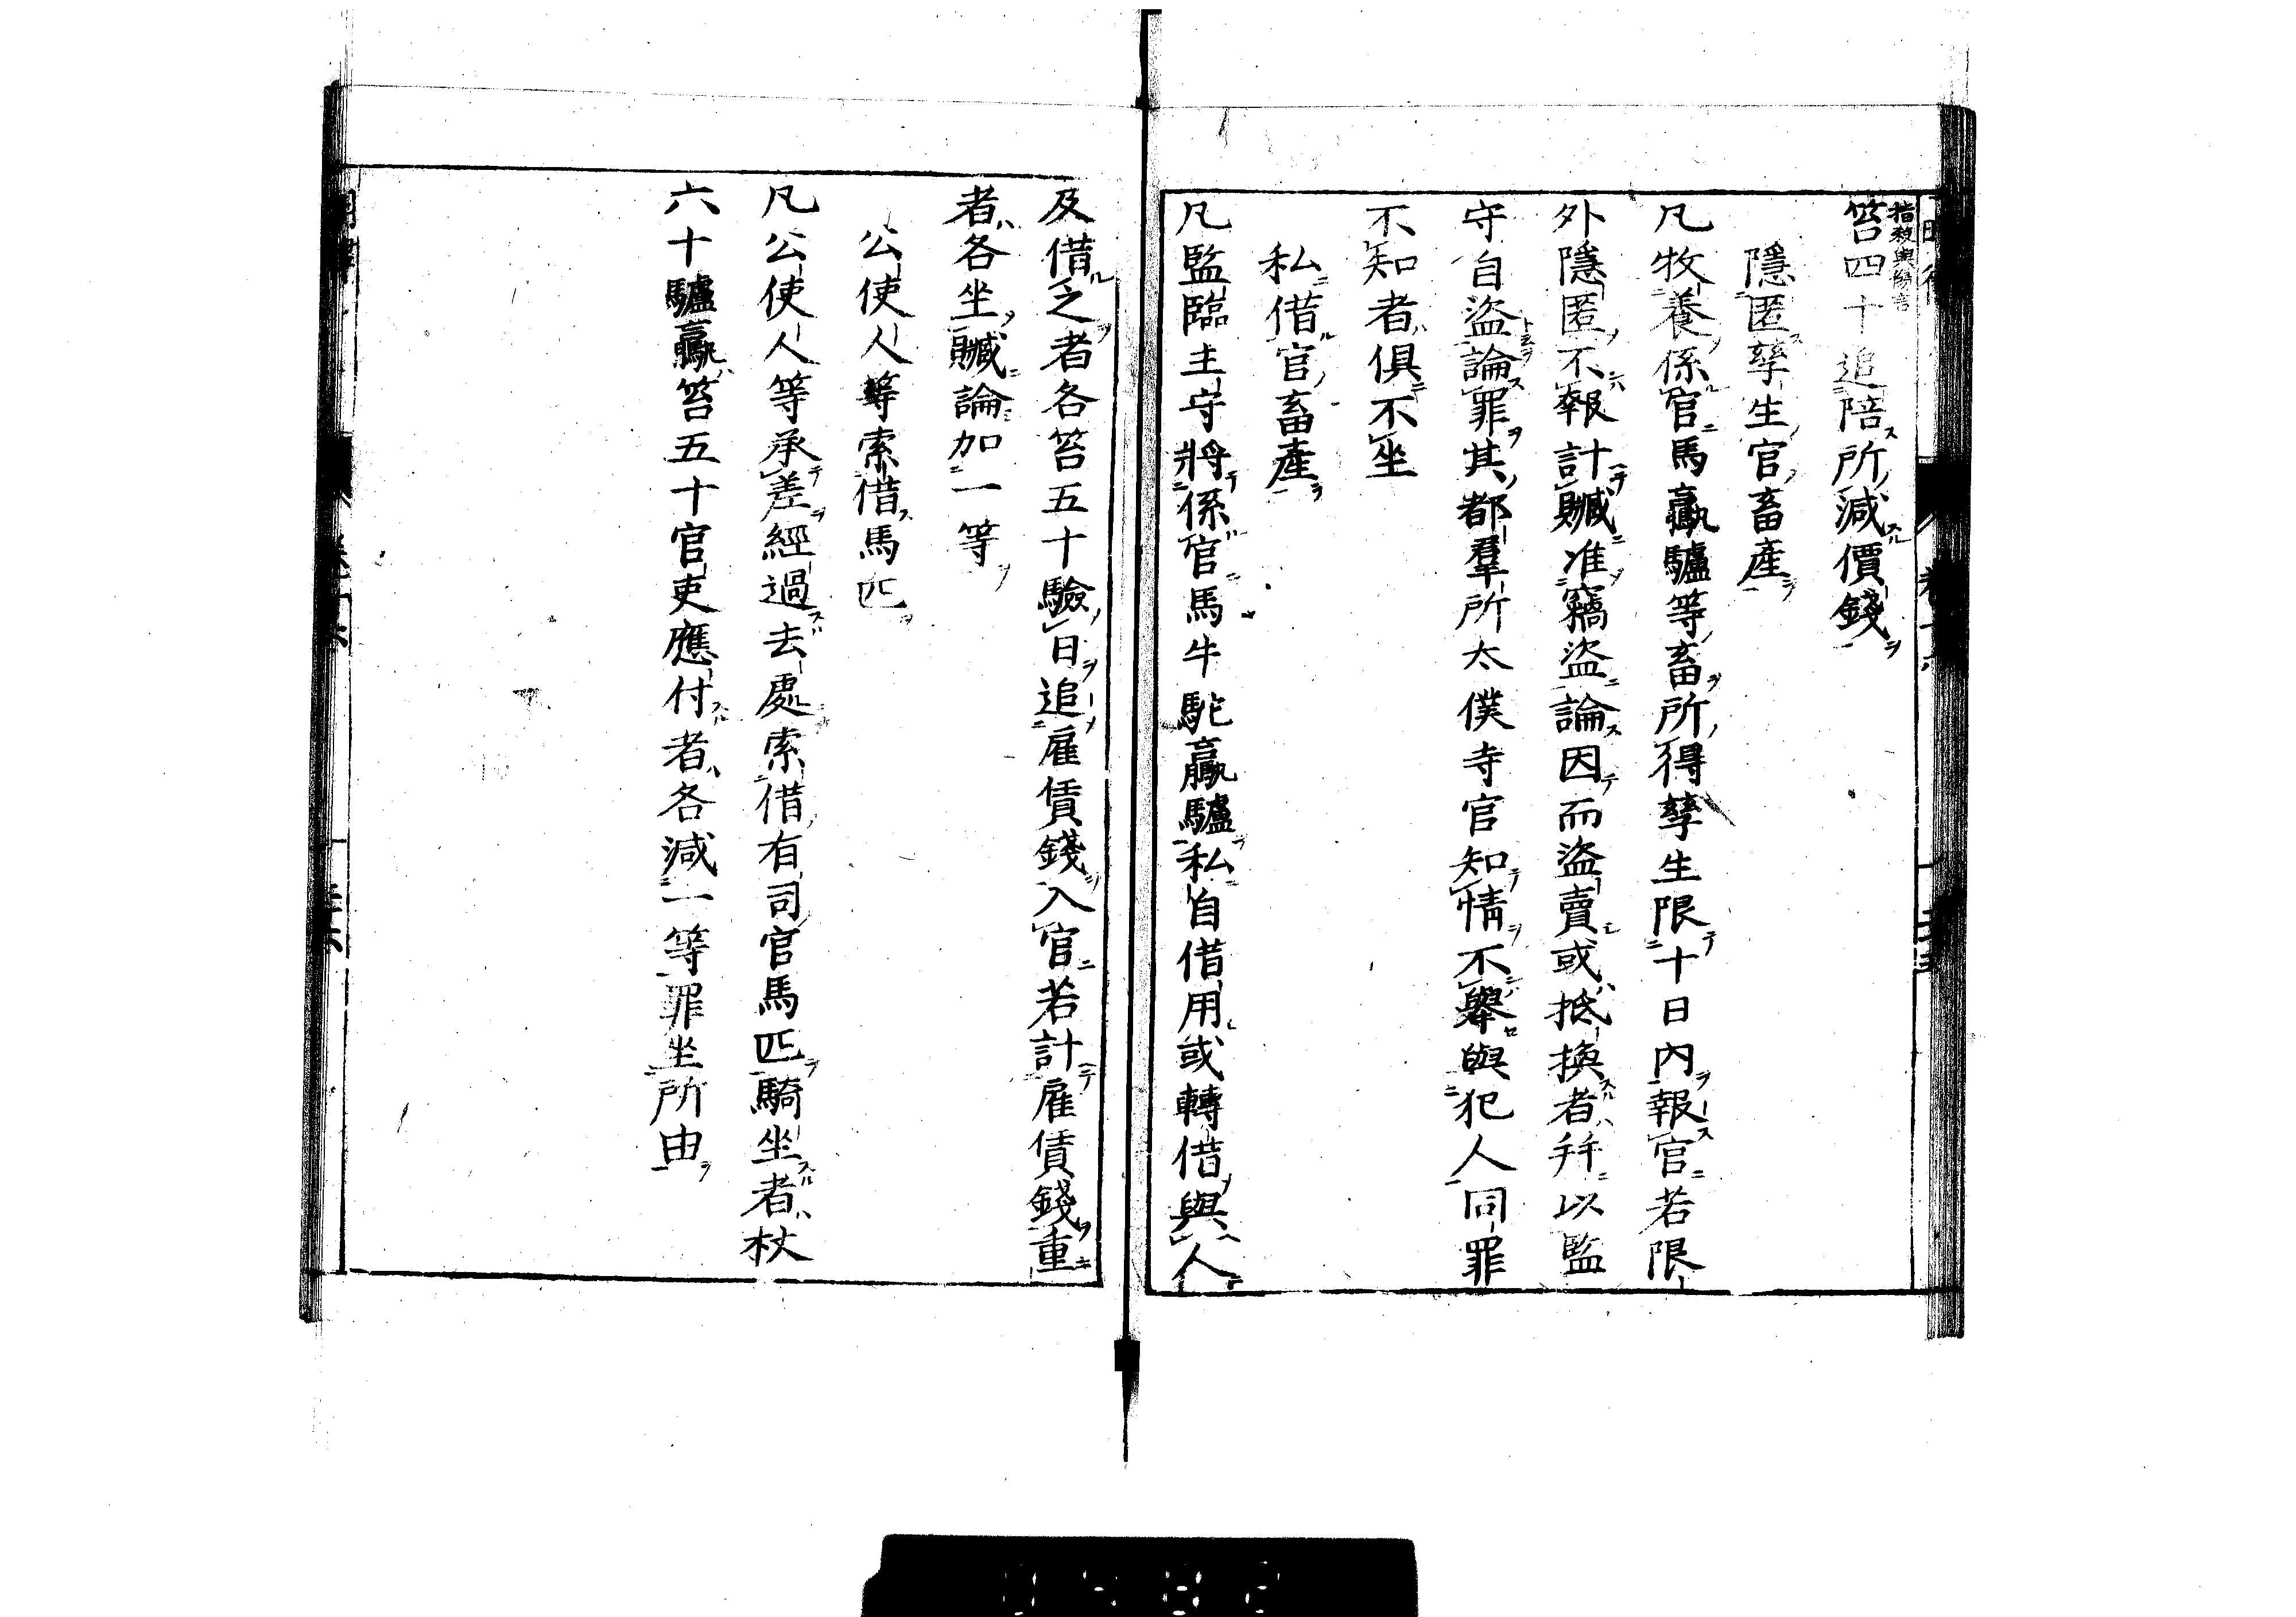 笞四十追陪所減價錢
隱匿孳生官畜產
凡牧養係官馬驘驢等畜所得孳生限十日內報官若限
外隱匿不報計贓准竊盜論因而盜賣或抵換者并以監
守自盜論罪其都羣所太僕寺官知情不舉與犯人同罪
不知者俱不坐
私借官畜產
凡監臨主守將係官馬牛駝驘驢私自借用或轉借與人
及借之者各笞五十驗日追雇賃錢入官若計雇賃錢重
者各坐贓論加一等
公使人等索借馬匹
凡公使人等承差經過去處索借有司官馬匹騎坐者杖
六十驢驘笞五十官吏應付者各減一等罪坐所由